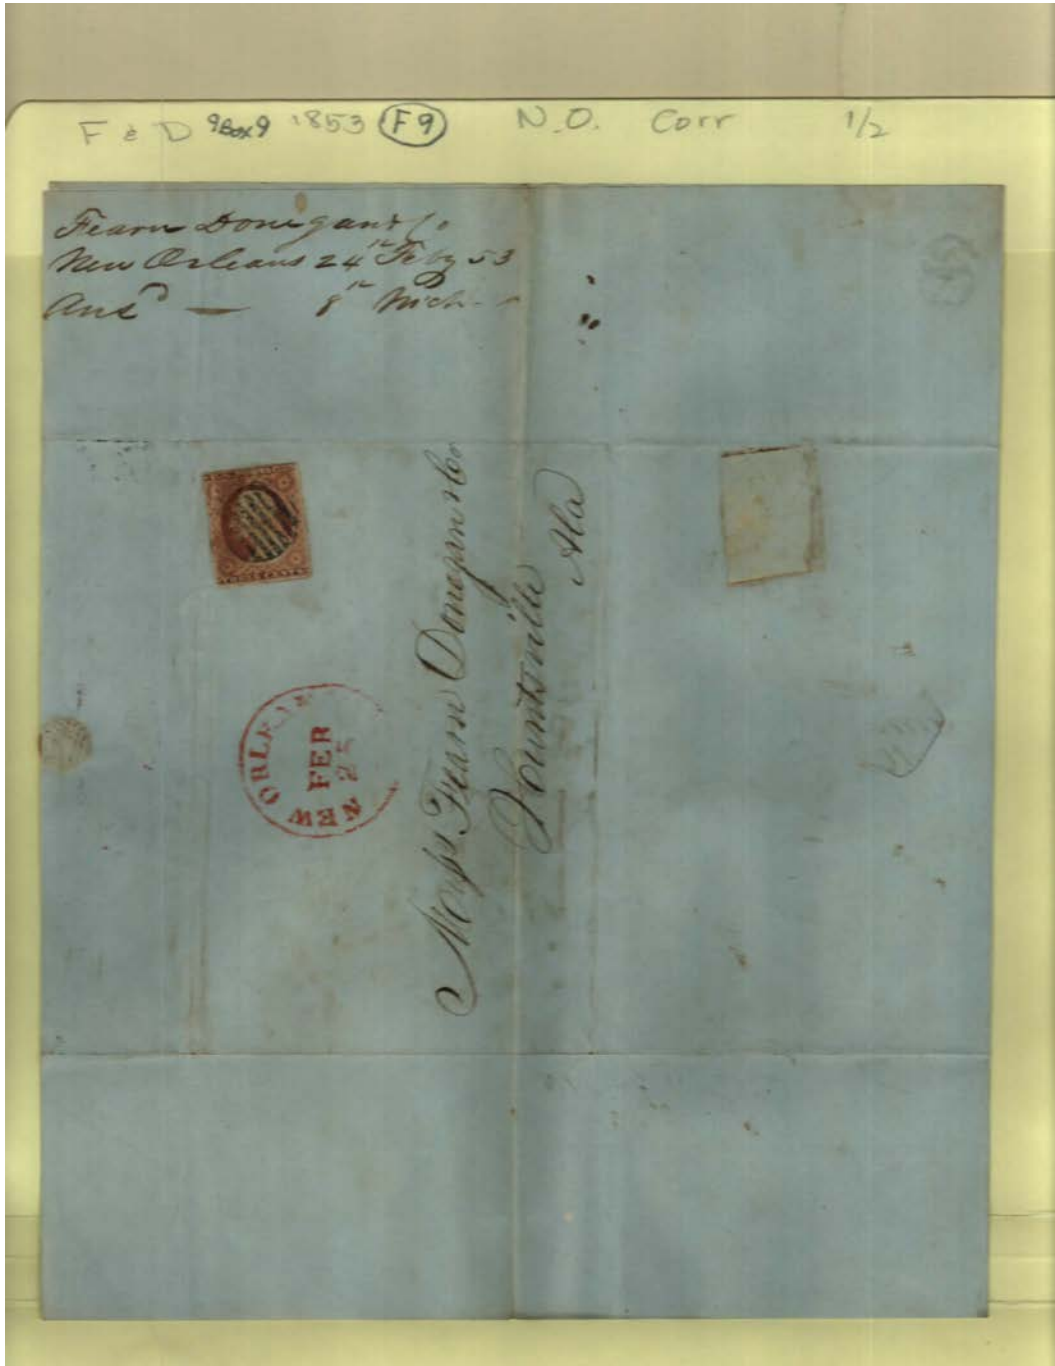 F & D 9Box9 1853 F9 N.O. Corr 1/2
Fearn Donegan & Co
New Orleans 24th Feby 53
Ansd — 8th Mch
THREE CENTS
NEW ORLEANS
FEB
25
Messrs Fearn Donegan & Co
Huntsville
Ala